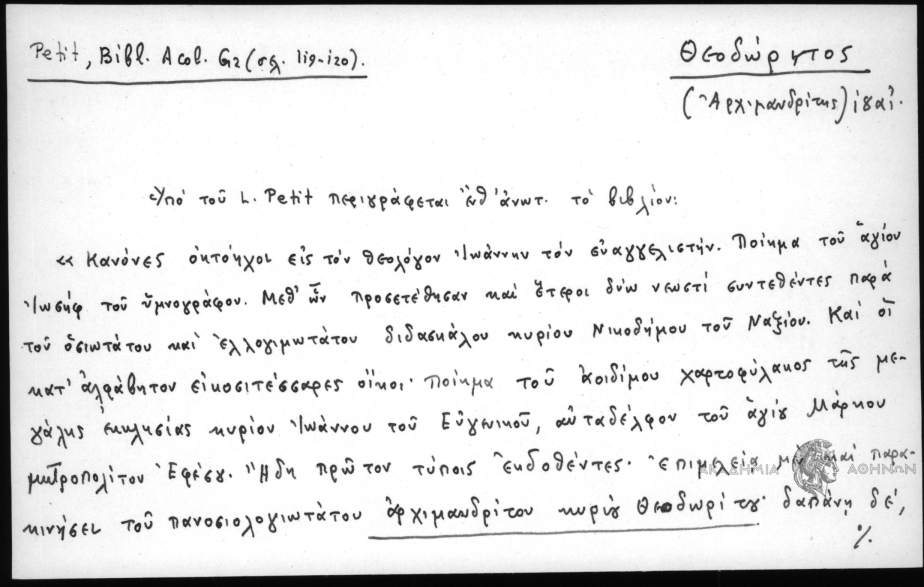 Petit, Bibl. Acol. G2 (σελ. 119-120).
Θεοδώρητος
(Ἀρχιμανδρίτης) ιθαἰ.
Ὑπό τοῦ L. Petit περιγράφεται ἔνθ' ἀνωτ. τό βιβλίον:
« Κανόνες ὀκτόηχοι εἰς τόν θεολόγον Ἰωάννην τόν εὐαγγελιστήν. Ποίημα τοῦ ἁγίου
Ἰωσήφ τοῦ ὑμνογράφου. Μεθ' ὧν προσετέθησαν καί ἕτεροι δύω νεωστί συντεθέντες παρά
τοῦ ὁσιωτάτου καί ἐλλογιμωτάτου διδασκάλου κυρίου Νικοδήμου τοῦ Ναξίου. Καί οἱ
κατ' ἀλφάβητον εἰκοσιτέσσαρες οἶκοι· Ποίημα τοῦ ἀοιδίμου χαρτοφύλακος τῆς με-
γάλης ἐκκλησίας κυρίου Ἰωάννου τοῦ Εὐγενικοῦ, αὐταδέλφου τοῦ ἁγίου Μάρκου
μητροπολίτου Ἐφέσου. Ἤδη πρῶτον τύποις ἐκδοθέντες· ἐπιμελείᾳ μέν καί παρα-
κινήσει τοῦ πανοσιολογιωτάτου ἀρχιμανδρίτου κυρίου Θεοδωρίτου· δαπάνῃ δέ,
%.
ΑΚΑΔΗΜΙΑ ΑΘΗΝΩΝ